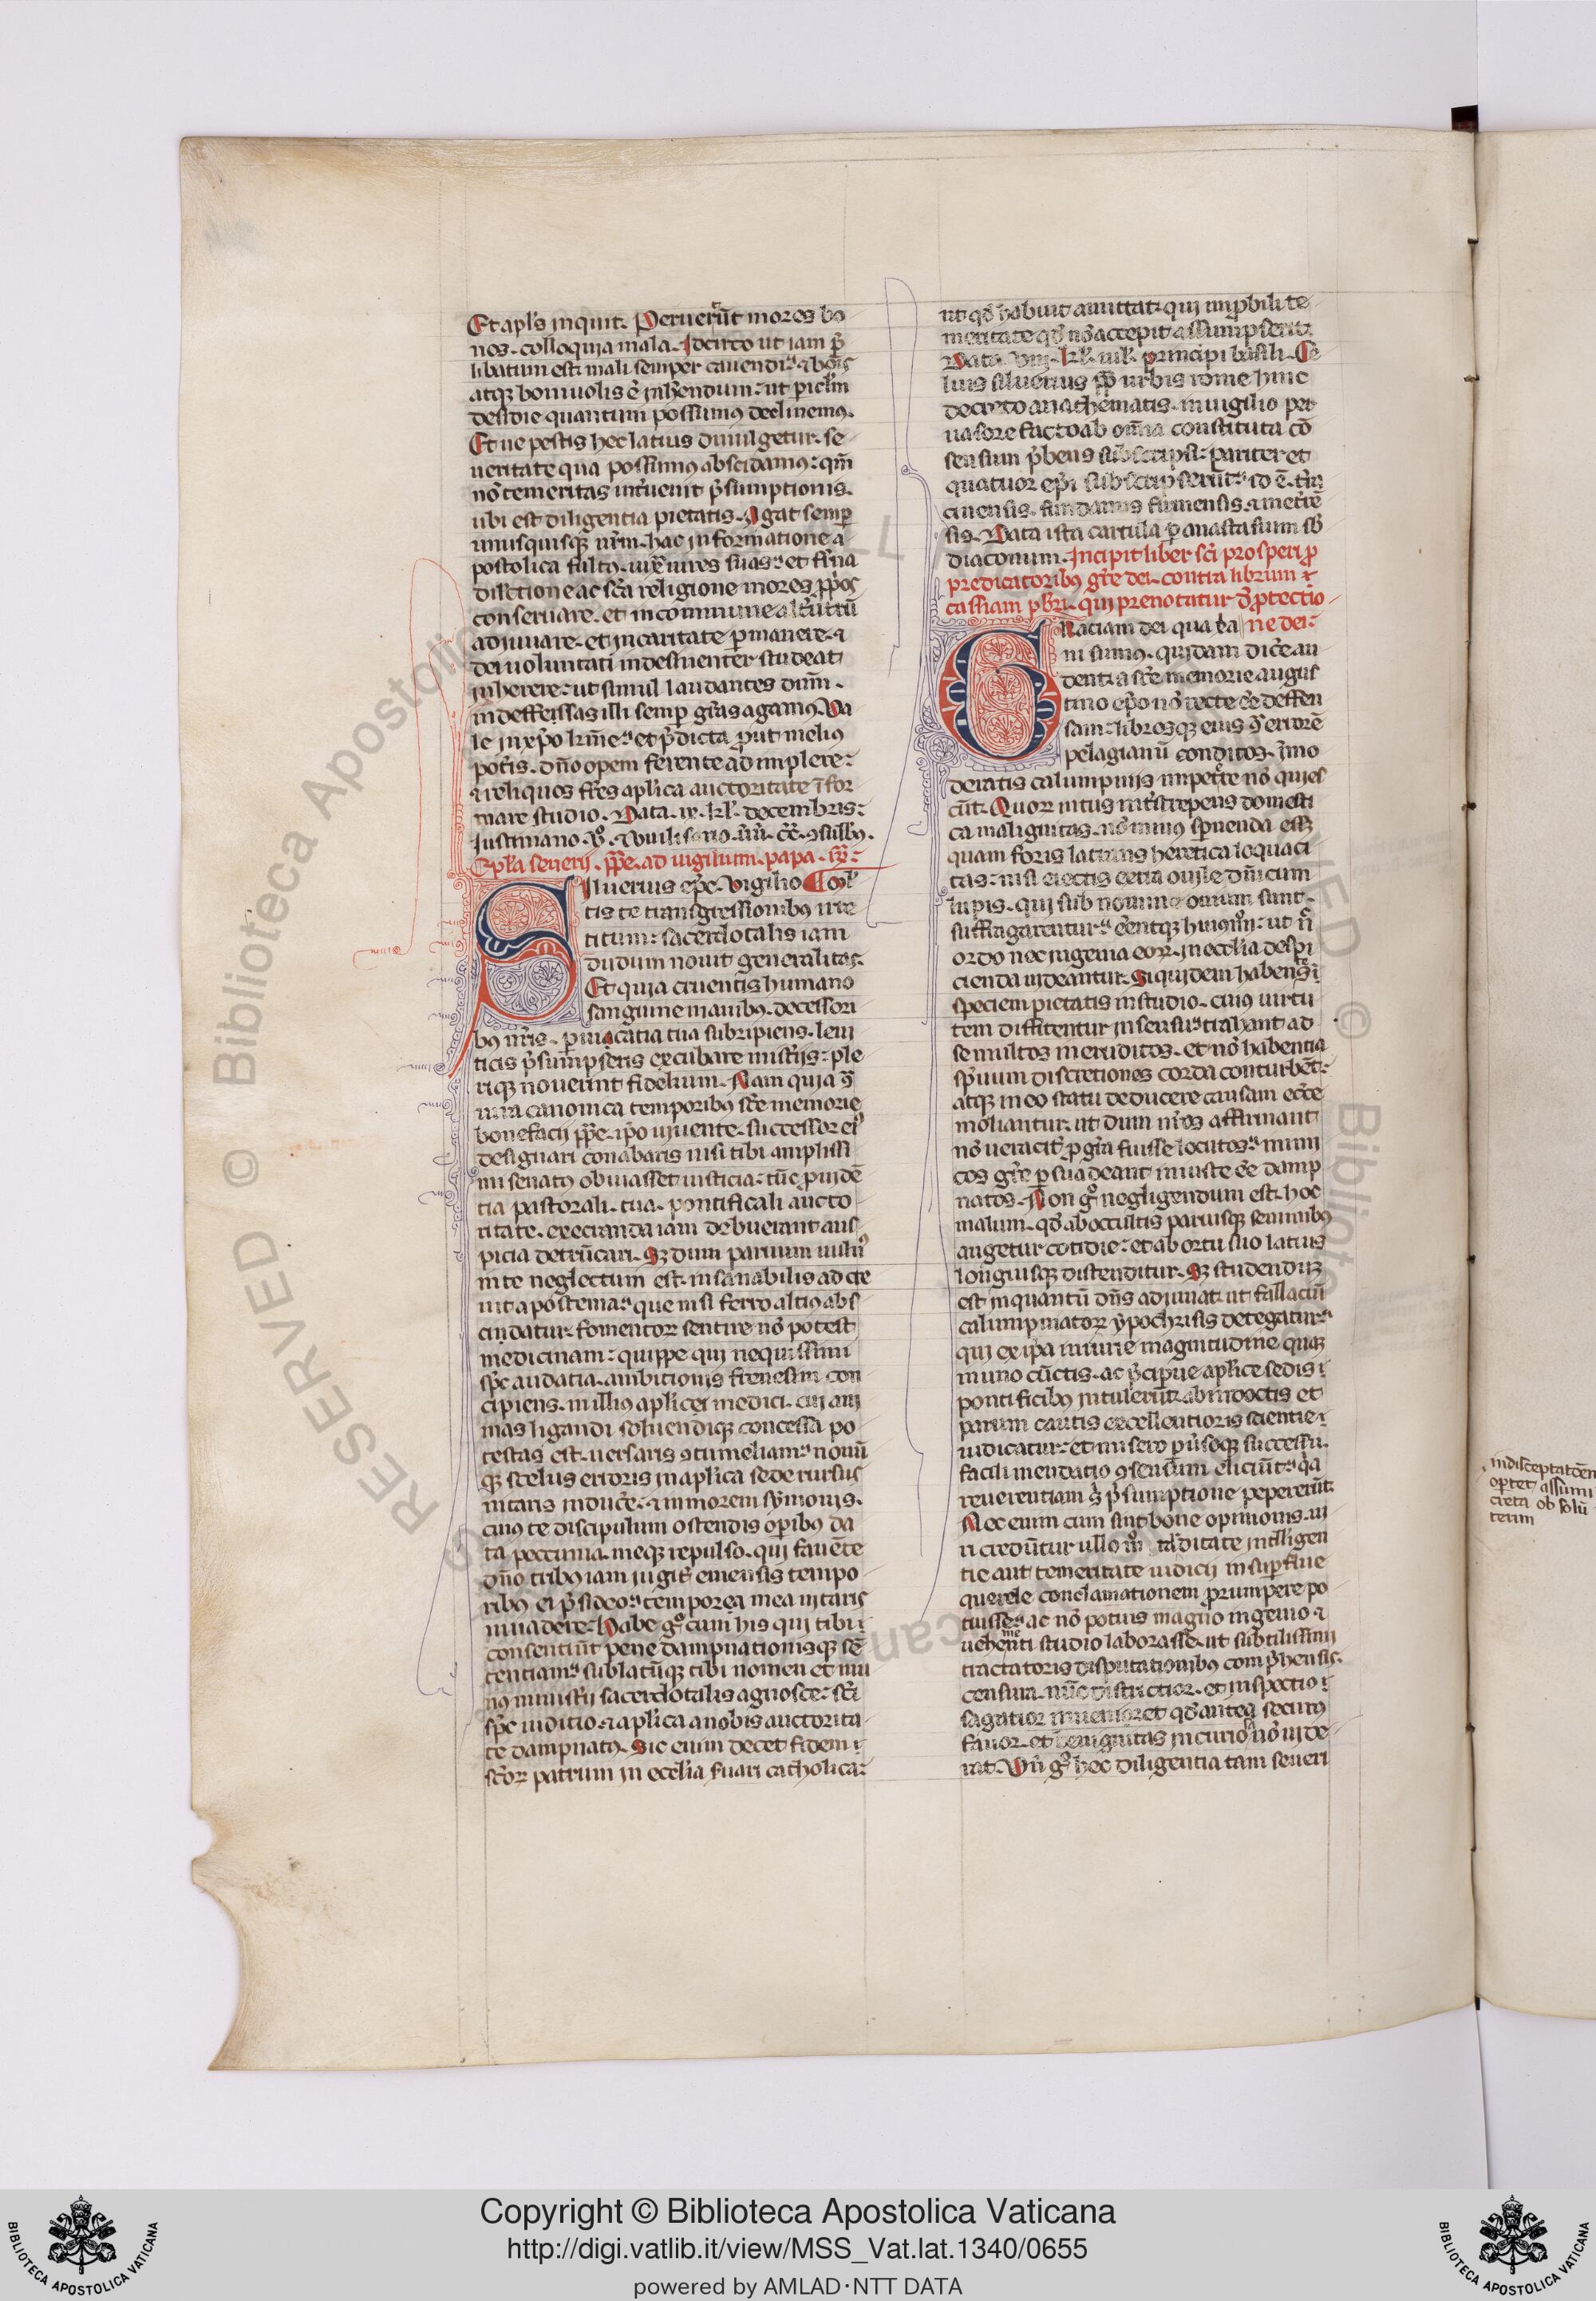 Et apl's inquit. Peruerᵉūt mores bo
nos. colloquia mala. Idcirco ut iam p̄
libatum est. mali semper cauendi. ⁊ bōis
atq; boniuolis ē inh'endum. ut p'iclm
desidie quantum possumꝰ declinemꝰ.
Et ne pestis hec latius diuulgetur. se
ueritate qua possumꝰ abscidamꝰ: qm̄
nō temeritas int'uenit p̄sumptionis.
ubi est diligentia pietatis. Agat semꝑ
unusquisq; ur̄m. hac informatione a
postolica fultꝰ. iuxͣ uires suas. et fr̄na
dil'ctione ac sc̄a religione mores ꝓp'os
conseruare. et in comune alt'utrū
adiuuare. et in caritate ꝑmanere. ⁊
dei uoluntati indesinenter studeat
inherere: ut simul laudantes dn̄m.
indeffessas illi semꝑ gr̄as agamꝰ. Va
le in xp̄o kr̄me. et p̄dicta ꝓut melius
pot'is. dn̄o opem ferente adimplere:
⁊ reliquos fr̄es apl'ica auctoritate ī for
mare studio. Data. ix. kl'. decembris:
Iustiniano. vͦ. ⁊ uuilisario. ūū. c̄c̄. ꝯsulbꝰ.
Epl'a seuerij. pp̄e. ad uigilium. papa. lx:
Siluerius ep̄c. Vigilio Mul'
tis te transgressionibꝰ irre
titum: sacerdotalis iam
dudum nouit generalitas.
Et quia cruentis humano
sanguine manibꝰ. decessori
bꝰ nr̄is. ꝑuicatia tua subripiens. leui
ticis p̄sumps'is excubare mist'ijs: ple
riq; nouerunt fidelium. Nam quia ꝯͣ
iura canonica temporibꝰ sc̄e memorie
bonefacij pp̄e. ip̄o uiuente. successor eiꝰ
designari conabaris nisi tibi amplissi
mi senatꝰ obuiasset iusticia: tūc ꝓuidē
tia pastorali. tua. pontificali aucto
ritate. execranda iam debuerant aus
picia detrūcari. Sꝫ dum paruum uulnꝰ
in te neglectum est. insanabilis adcre
uit apostema. que nisi ferro altiꝰ abs
cindatur. fomentoꝝ sentire nō potest
medicinam: quippe qui nequissimi
sp̄c audatia. ambitionis frenesim con
cipiens. in illius apl'icei medici. cui ani
mas ligandi soluendiq; concessa po
testas est. uersaris ꝯtumeliam. nouū
q; scelus erroris in apl'ica sede rursus
nitaris induc'e. ⁊ in morem symonis.
cuiꝰ te discipulum ostendis opibꝰ da
ta peccunia. meq; repulso. qui fauēte
dn̄o tribꝰ iam iugit' emensis tempo
ribꝰ ei p̄sideo. tempora mea nitaris
inuadere. Habe g° cum his qui tibi ⁊
consentiūt pene dampnationisq; sē
tentiam. sublatūq; tibi nomen et mu
nꝰ minist'ij sacerdotalis agnosce: sc̄i
sp̄c iuditio ⁊ apl'ica a nobis auctorita
te dampnatꝰ. Sic enim decet fidem ⁊
sc̄oꝝ patrum in eccl'ia s'uari catholica:
ut qd' habuit amittat. qui inꝓbili te
meritate qd' nō accepit assumpserit.
Data. viij. kl'. iul'. principi basili. Ce
lius siluerius pp̄ urbis rome hinc
decreto anathematis. in uigilio per
uasore facto ab omnia constituta cō
sensum p̄bens subscripsi. pariter et
quatuor ep̄i subscripserūt. id ē. t'ra
cinensis. fundanus firmensis. ⁊ met'rē
sis. Data ista cartula ꝑ anastasium sb̄
diaconum. Incipit liber sc̄i prosperi ꝓ
predicatoribꝰ gr̄e dei. contra librum ⁊
cassiam pb'ri. qui prenotatur d' ꝓtectio
Graciam dei qua xͣa ne dei:
ni sumꝰ. quidam dic'e au
dent. a sc̄e memorie augus
tino ep̄o nō recte ee' deffen
sam: librosq; eius ꝯͣ errorē
pelagianū conditos. īmo
deratis calumpnijs impet'e nō quies
cūt. Quoꝝ intus int'strepens domesti
ca malignitas. nō minꝰ spnenda ess;
quam foris latrans heretica loquaci
tas: nisi eiectis extra ouile dn̄icum
lupis. qui sub nomine ouium sunt.
suffragarentur. eentq; huiꝰm̄: ut n̄
ordo nec ingenia eoꝝ. in eccl'ia despi
cienda uideantur. Siquidem habent'
speciem pietatis in studio. cuiꝰ uirtu
tem diffitentur in sensu. trahant ad
se multos ineruditos. et nō habentia
sp̄uum discretiones corda conturbēt:
atq; in eo statu deducere causam ecc'e
moliantur. ut dum nr̄os affirmant
nō ueracit' ꝓ gr̄a fuisse locutos. inimi
cos gr̄e ꝑsuadeant iniuste ee' damp
natos. Non g° negligendum est. hoc
malum. qd' ab occultis paruisq; seminibꝰ
augetur cotidie: et ab ortu suo latius
longiusq; distenditur. Sꝫ studendūꝫ
est inquantū dn̄s adiuuat. ut fallaciū
calumpniatoꝝ ypochrisis detegatur.
qui ex ip̄a iniurie magnitudine quaꝫ
in uno cūctis. ac p̄cipue apl'ice sedis ⁊
pontificibꝰ intulerūt. ab indoctis et
parum cautis excellentioris scientie ⁊
iudicatur. et misero p̄u'soq; successu.
facili mendatio ꝯsensum eliciūt. qͣ
reuerentiam sͥ p̄sumptione pepererūt.
Nec enim cum sint bone opinionis. ui
ri credūtur ullo m° tarditate intelligen
tie aut temeritate iudicij in suꝑflue
querele conclamationem ꝓrumpere po
tuisse. ac nō potius magno ingenio ⁊
uehementi studio laborasse. ut subtilissimi
tractatoris disputationibꝰ comp̄hensis.
censura. nūc districtior. et inspectio ⁊
sagatior inueniret qd' antea secutus
fauor. et benignitas incuriosa nō uide
rat. Vn̄ g° hec diligentia tam seueri
indisceptatōem
oꝑtet assumi
creta ob solū
terim
Copyright © Biblioteca Apostolica Vaticana
http://digi.vatlib.it/view/MSS_Vat.lat.1340/0655
powered by AMLAD·NTT DATA
BIBLIOTECA APOSTOLICA VATICANA
BIBLIOTECA APOSTOLICA VATICANA